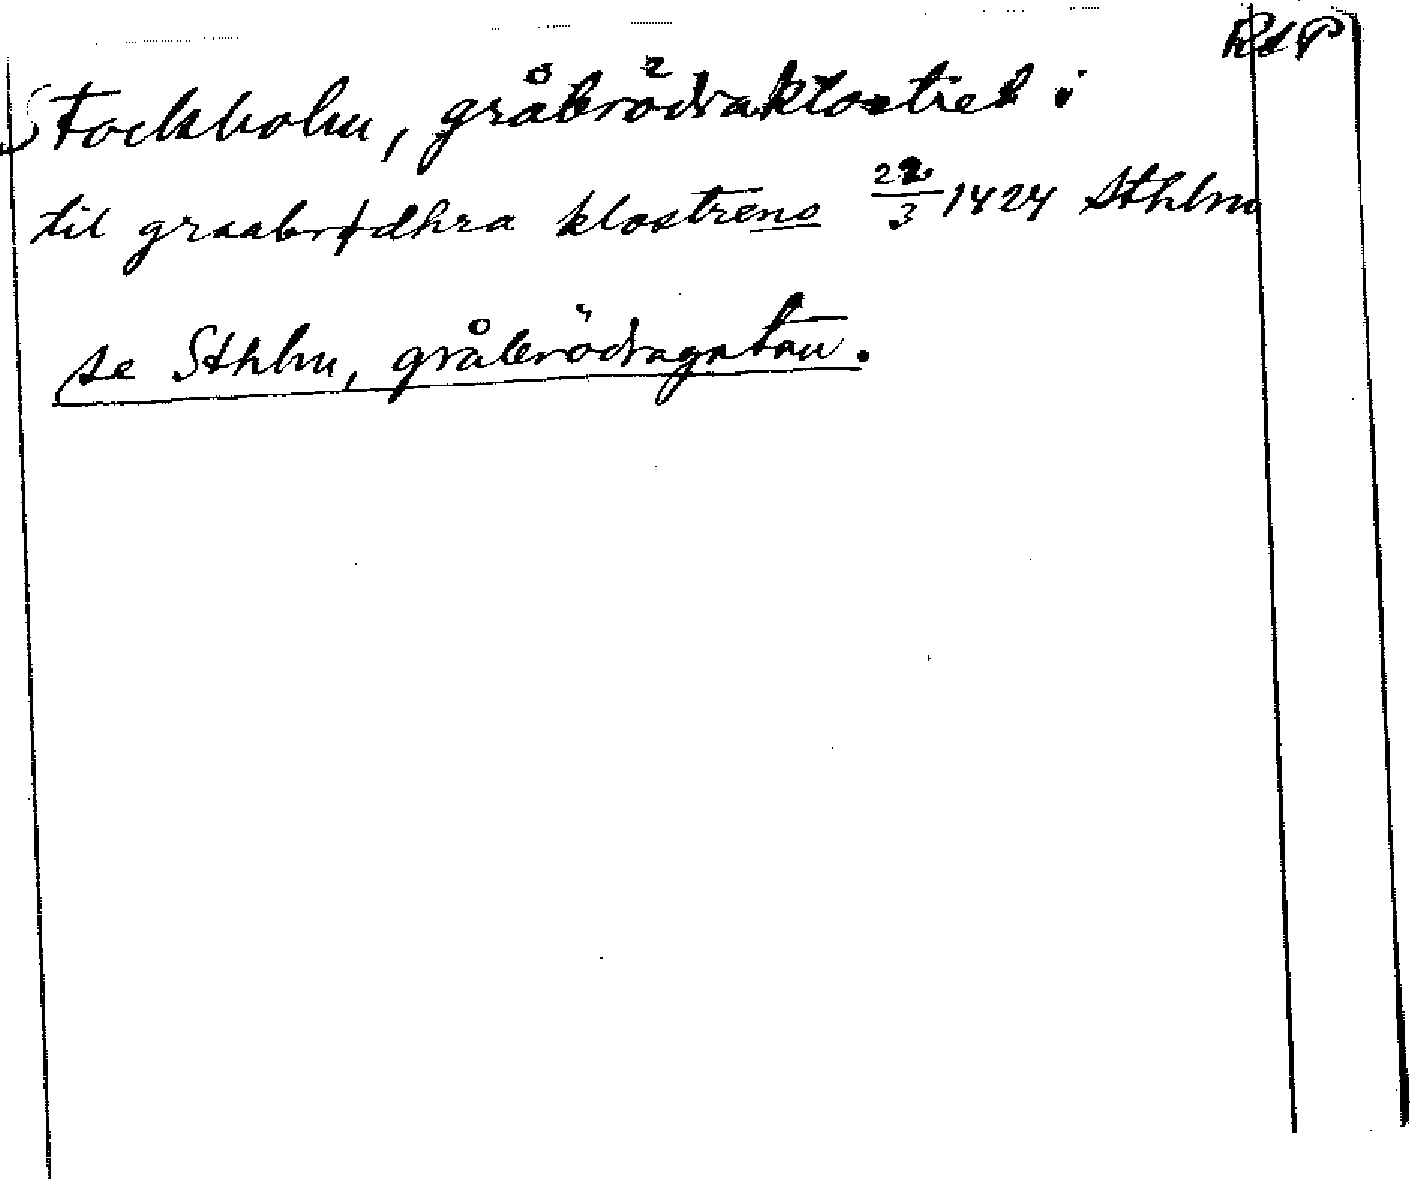 RdP
Stockholm, gråbrödraklostret i
til graabrødhra klostrens 22/3 1424 Sthlm
se Sthlm, gråbrödragatan.